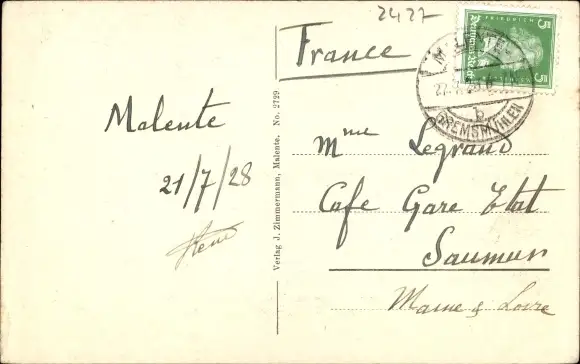 2427
France
FRIEDRICH
5 5
Deutsches Reich
MALENTE-
27.7.28.
b
GREMSMÜHLEN
Malente
21/7/28
Verlag J. Zimmermann, Malente. No. 2729
Mme Legrand
Cafe Gare Etat
Saumur
Maine & Loire